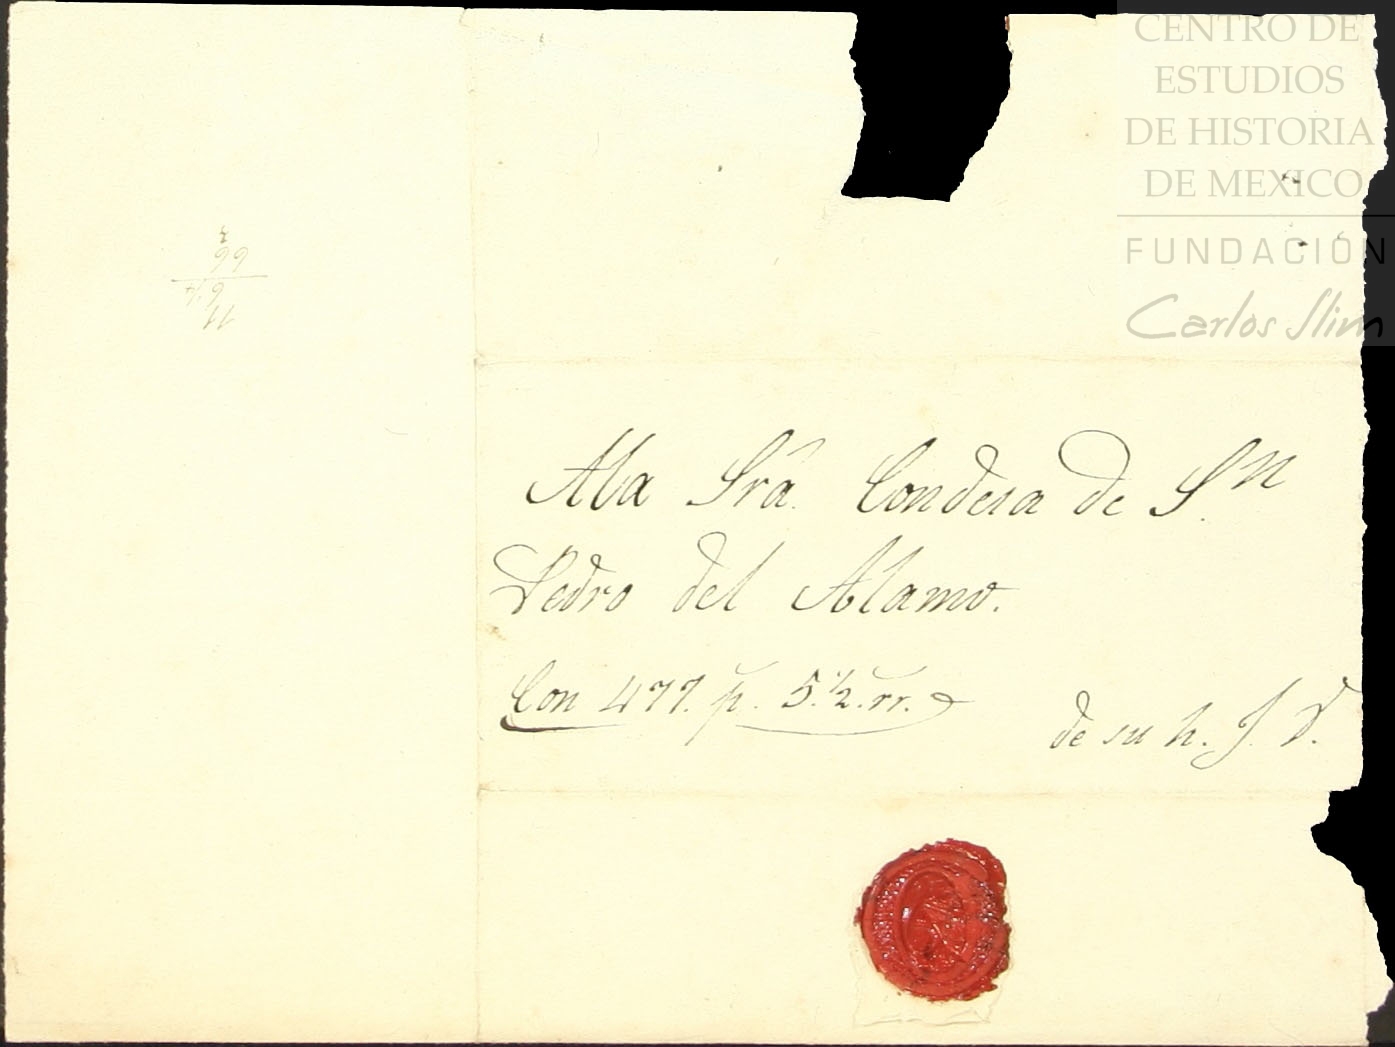 CENTRO DE
ESTUDIOS
DE HISTORIA
DE MEXICO
FUNDACIÓN
Carlos Slim
11
6 1/4
66
2
Ala Srâ. Condesa de S.n
Pedro del Alamo.
Con 477. p. 5.½.rr.
de su h. J. V.